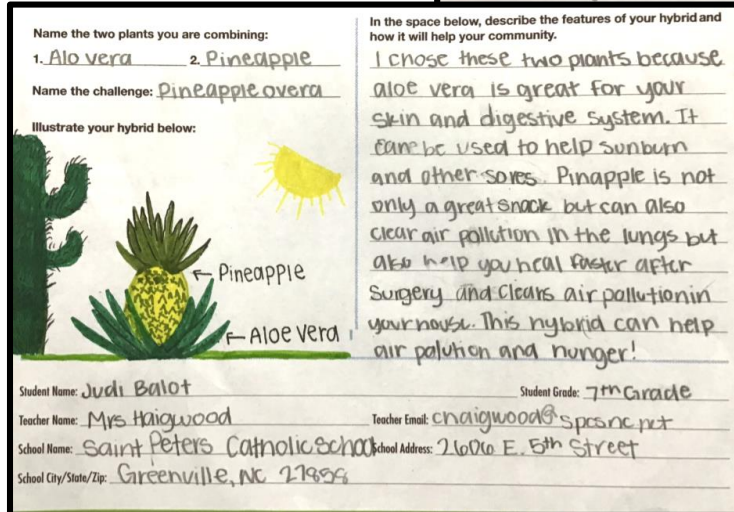 Name the two plants you are combining:
1. Alo vera 2. Pineapple
Name the challenge: Pineappleovera
Illustrate your hybrid below:
← Pineapple
← Aloe vera
In the space below, describe the features of your hybrid and
how it will help your community.
I chose these two plants because
aloe vera is great for your
skin and digestive system. It
cane be used to help sunburn
and other sores. Pinapple is not
only a great snack but can also
clear air pollution in the lungs but
also help you heal faster after
surgery and clears air pollution in
your house. This hybrid can help
air palution and hunger!
Student Name: Judi Balot Student Grade: 7th Grade
Teacher Name: Mrs Haigwood Teacher Email: chaigwood@spcsnc.net
School Name: Saint Peters Catholic School School Address: 2606 E. 5th Street
School City/State/Zip: Greenville, NC 27858